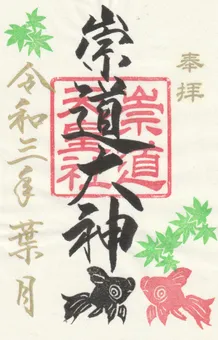 奉拝
崇道大神
崇道
天王社
令和三年葉月